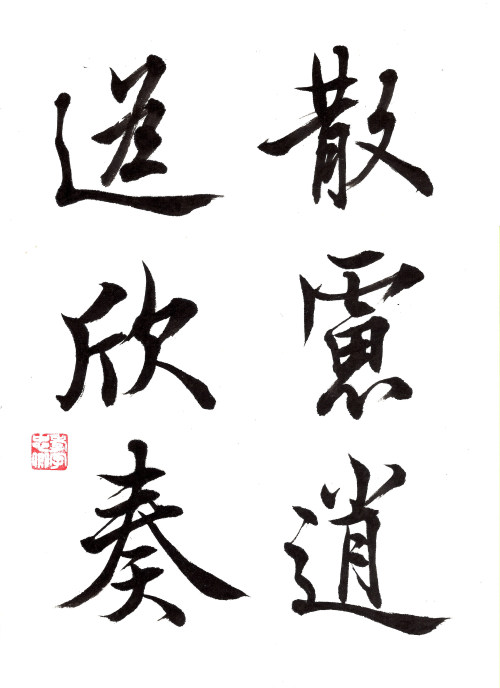 散慮逍
遙欣奏